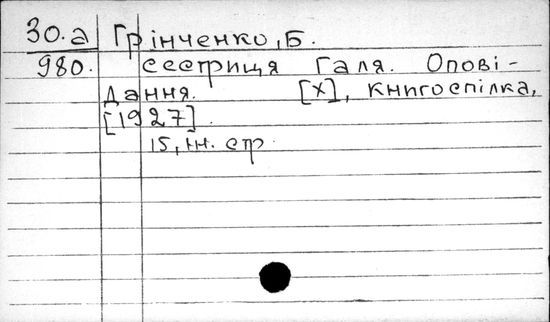 30.а Грінченко, Б.
980. Сестриця Галя. Опові-
дання. [Х], Книгоспілка,
[1927].
15, ін. стр.